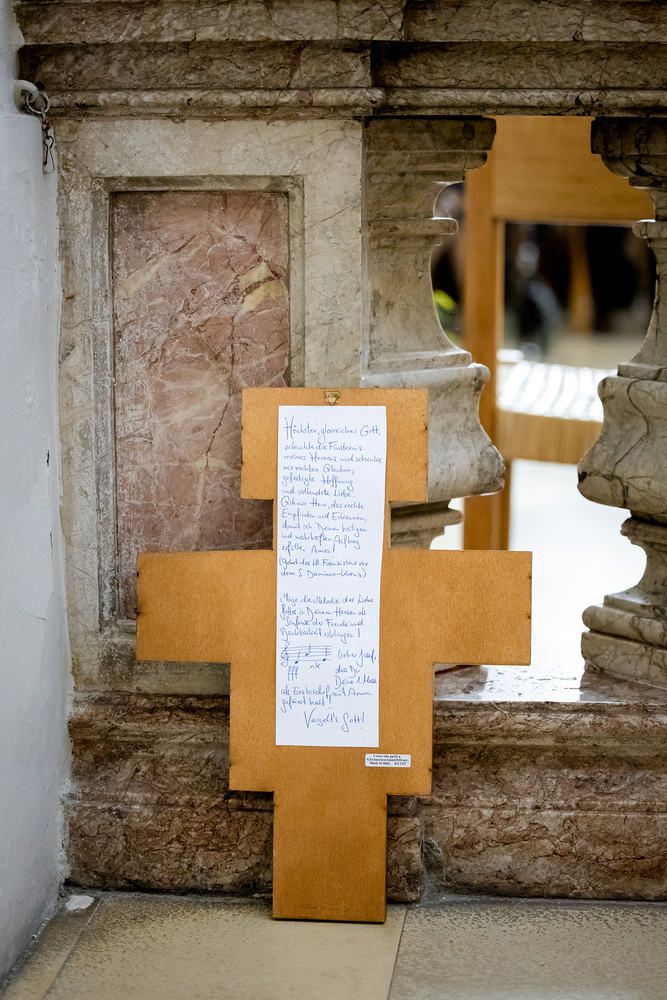 Höchster, glorreicher Gott,
erleuchte die Finsternis
meines Herzens und schenke
mir rechten Glauben,
gefestigte Hoffnung
und vollendete Liebe.
Gib mir Herr, das rechte
Empfinden und Erkennen,
damit ich Deinen heiligen
und wahrhaften Auftrag
erfülle. Amen!
(Gebet des Hl. Franziskus vor
dem S. Damiano-Kreuz)
Möge die Melodie der Liebe
Gottes in Deinem Herzen als
Sinfonie der Freude und
Dankbarkeit erklingen!
fff
Lieber Josef,
dass Du
Deine 1. Messe
als Erzbischof mit
gefeiert hast!
Vergelt's Gott!
Made in Italy